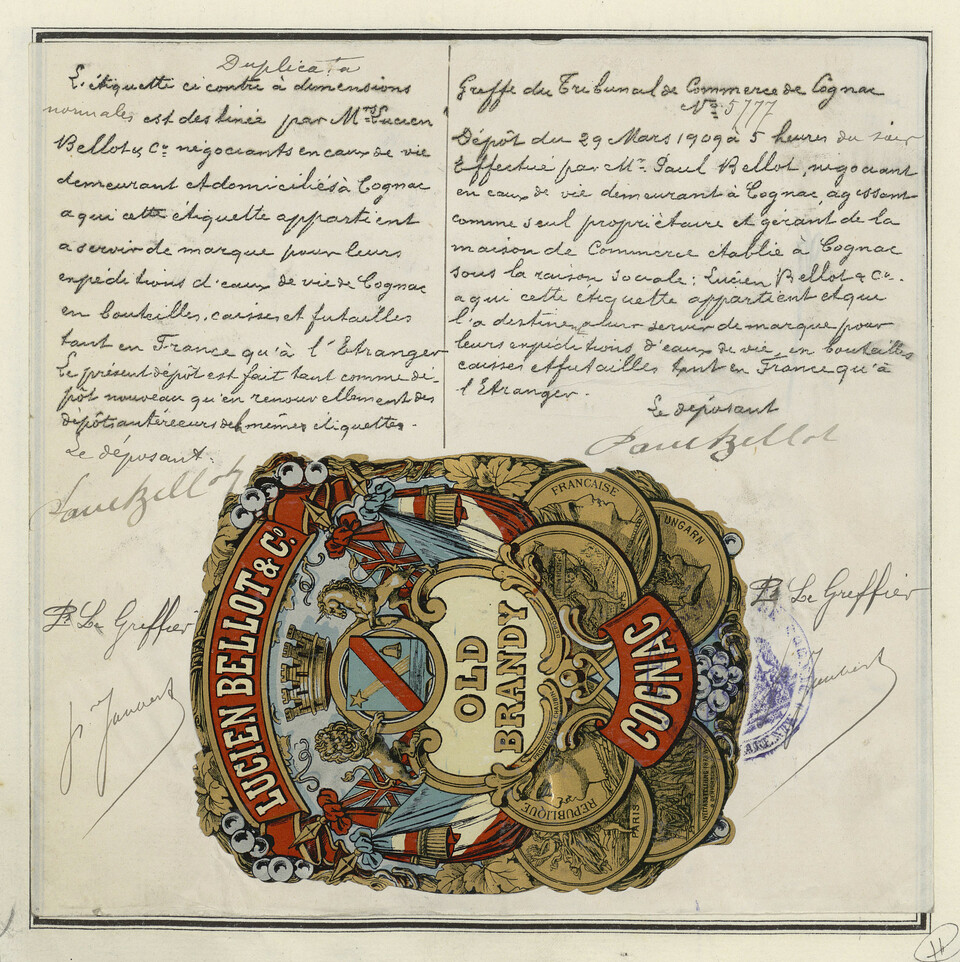 Duplicata
L'étiquette ci contre à dimensions
normales est destinée par Mrs Lucien
Bellot & Co négociants en eaux de vie
demeurant et domiciliés à Cognac
a qui cette étiquette appartient
a servir de marque pour leurs
expéditions d'eaux de vie de Cognac
en bouteilles, caisses et futailles
tant en France qu'à l'Etranger
Le présent dépôt est fait tant comme dé-
pôt nouveau qu'en renouvellement des
dépôts antérieurs des mêmes étiquettes.
Le déposant.
Paul Bellot
Pr Le Greffier
Greffe du Tribunal de Commerce de Cognac
No 5777
Dépôt du 29 Mars 1909 à 5 heures du soir
Effectué par Mr Paul Bellot, négociant
en eaux de vie demeurant à Cognac, agissant
comme seul propriétaire et gérant de la
maison de Commerce établie à Cognac
sous la raison sociale: Lucien Bellot & Co.
a qui cette étiquette appartient et que
l'a destine a leur servir de marque pour
leurs expéditions d'eaux de vie en bouteilles
caisses et futailles tant en France qu'à
l'Etranger.
Le déposant
Paul Bellot
Pr Le Greffier
LUCIEN BELLOT & Co.
OLD
BRANDY
COGNAC
FRANCAISE
UNGARN
REPUBLIQUE
PARIS